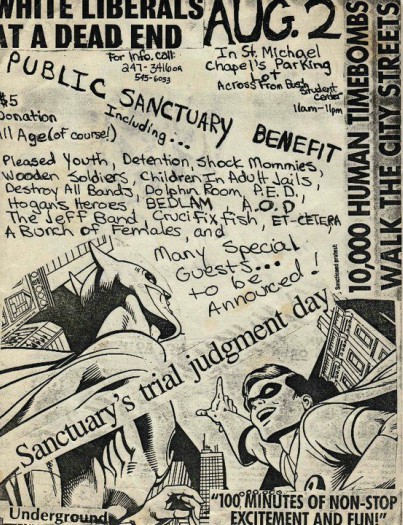 WHITE LIBERALS
AT A DEAD END
AUG. 2
For Info. Call:
247-3416 OR
545-6093
In St. Michael
Chapel's Parking
Lot
Across From Bush
Student
Center
11am-11pm
PUBLIC SANCTUARY BENEFIT
Including...
$5
Donation
All Age (of course!)
Pleased Youth, Detention, Shock Mommies,
Wooden Soldiers, Children In Adult Jails,
Destroy All Bands, Dolphin Room, P.E.D.,
Hogan's Heroes, BEDLAM, A.O.D
The Jeff Band, Crucifix fish, ET-CETERA
A Bunch of Femtales, and
Many Special
Guests...
to be
Announced!
10,000 HUMAN TIMEBOMBS
WALK THE CITY STREETS
Sanctuary's trial judgment day
Underground
"100 MINUTES OF NON-STOP
EXCITEMENT AND FUN!"